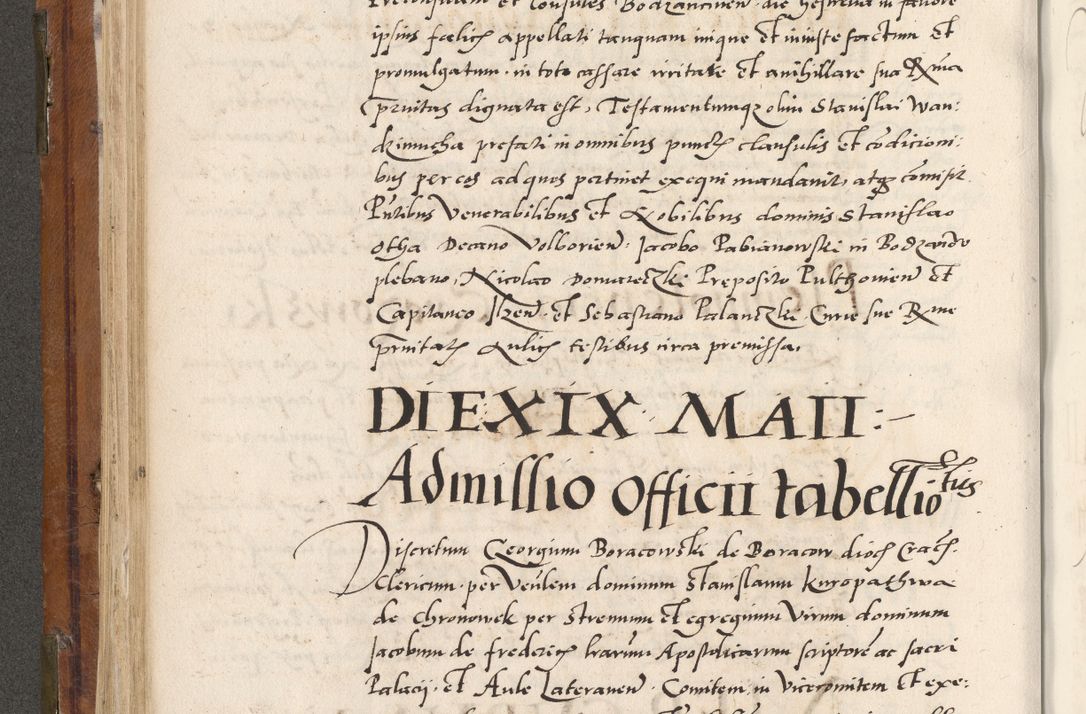 Preconsulem et Consules Bodzancinen̄ die hesterna in favore
ipsius fœlicꝭ appellati tanquam inique et iniuste factum et
promulgatum in toto cassare irritare et anihillare sua Rma
prnitas dignata est, Testamentumqꝫ olim Stanislai Wan:
dzimucha prefati in omnibus punctꝭ clausulis et cōdicioni:
bus per eos ad quos pertinet exequi mandavit, atqꝫ cōmisit
Pn̄tibus Venerabilibus et Nobilibus dominis Stanislao
Otha Decano Volborien̄. Jacobo Pabianowski in Bodzanow
plebano, Nicolao Domareczki Preposito Pulthovien̄ et
Capitaneo Ilzen̄. et Sebastiano Palanczki. Curie sue Rme
prnitatꝭ Aulicꝭ testibus circa premissa.
DIE XIX MAII:
Admissio Officii tabellio͞tus
Discretum Georgium Boracowski de Boracow dioc̄ Crac̄.
Clericum per Ven̄lem dominum Stanislaum Kuropathwa
de Chronowek per strenuum et egregium Virum dominum
Jacobum de frederic̄ l̄rarum Apostolicarum scriptorē ac sacri
Palacij et Aule Lateranen̄. Comitem in Vicecomitem et exe: